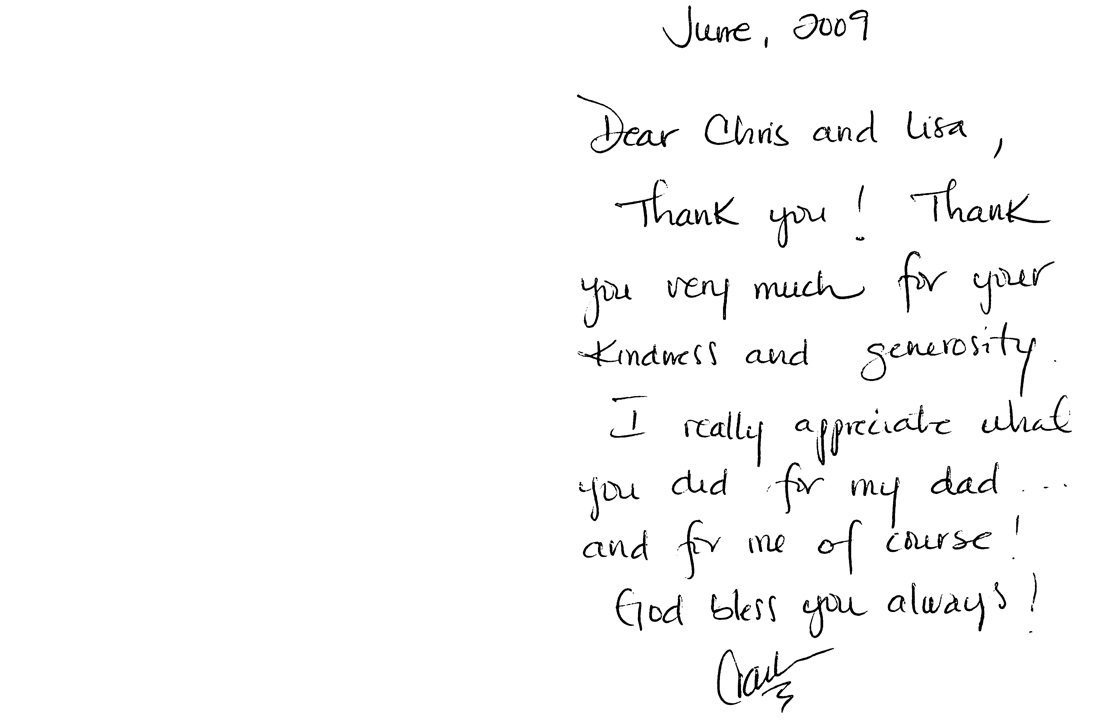 June, 2009
Dear Chris and Lisa,
Thank you! Thank
you very much for your
kindness and generosity.
I really appreciate what
you did for my dad...
and for me of course!
God bless you always!